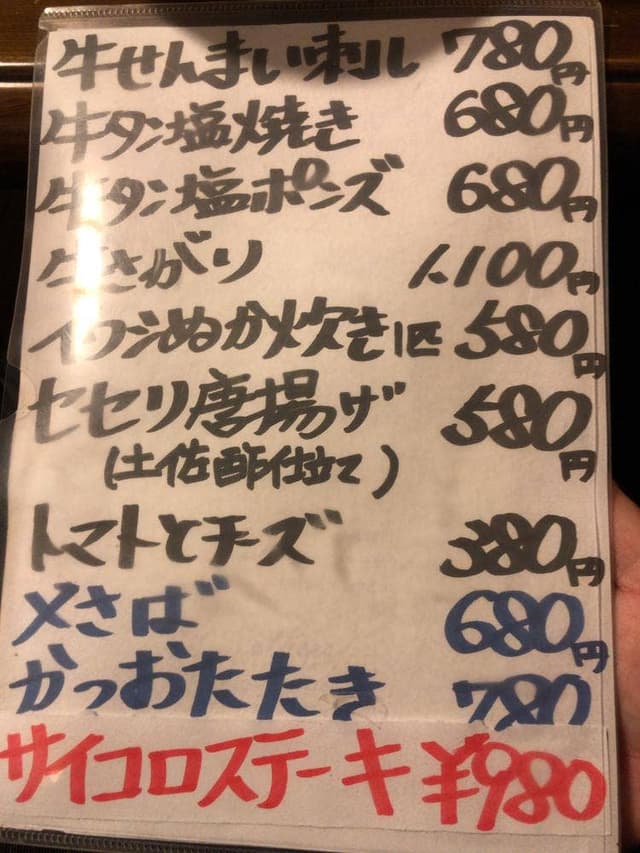 牛せんまい刺し 780円
牛タン塩焼き 680円
牛タン塩ポンズ 680円
牛さがり 1.100円
イワシぬか炊き1匹 580円
セセリ唐揚げ 580円
(土佐酢仕立て)
トマトとチーズ 380円
〆さば 680円
かつおたたき 780
サイコロステーキ ¥980